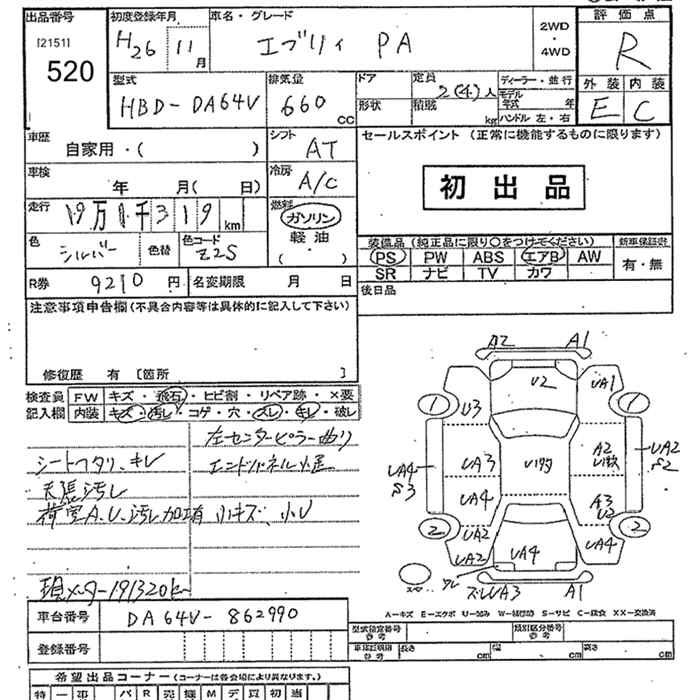 出品番号 初度登録年月 車名・グレード 2WD・4WD 評価点
[2151]
520 H26 11月 エブリィ PA R
型式 排気量 ドア 定員 ディーラー・並行 外装 内装
HBD-DA64V 660 CC 形状 積載 2(4)人 kg モデル年式 年 ハンドル 左・右 E C
車歴 自家用・( ) シフト AT セールスポイント (正常に機能するものに限ります)
車検 年 月( 日) 冷房 A/C 初出品
走行 19万1千319km 燃料 ガソリン 軽油 ・( )
色 シルバー 色替 色コード Z2S
装備品 (純正品に限り○をつけてください) 新車保証書
PS PW ABS エアB AW 有・無
SR ナビ TV カワ
R券 9210円 名変期限 月 日 後日品
注意事項申告欄(不具合内容等は具体的に記入して下さい)
修復歴 有 [箇所 ]
検査員記入欄 FW キズ・飛石・ヒビ割・リペア跡・×要
内装 キズ・汚レ・コゲ・穴・スレ・キレ・破レ
左センターピラー曲り
シートヘタリ、キレ エンドパネル小歪
天張汚レ
荷室A.U.汚レ加工有 小キズ、小U
現メーター191320km
A2 A1
U2 UA1
1 U3 1
UA3 A2
UA4 S3 UA2 S2
UA4 A3 U2
2 UA2 UA4 2
UA2 UA4
UA3 A1
A-キズ E-エクボ U-凹み W-補修跡 S-サビ C-腐食 XX-交換済
車台番号 DA64V-862990
型式指定番号 参考 類別区分番号 参考
登録番号 車体証明用 参考 長さ cm 幅 cm 高さ cm
希望出品コーナー (コーナーは各会場により異なります。)